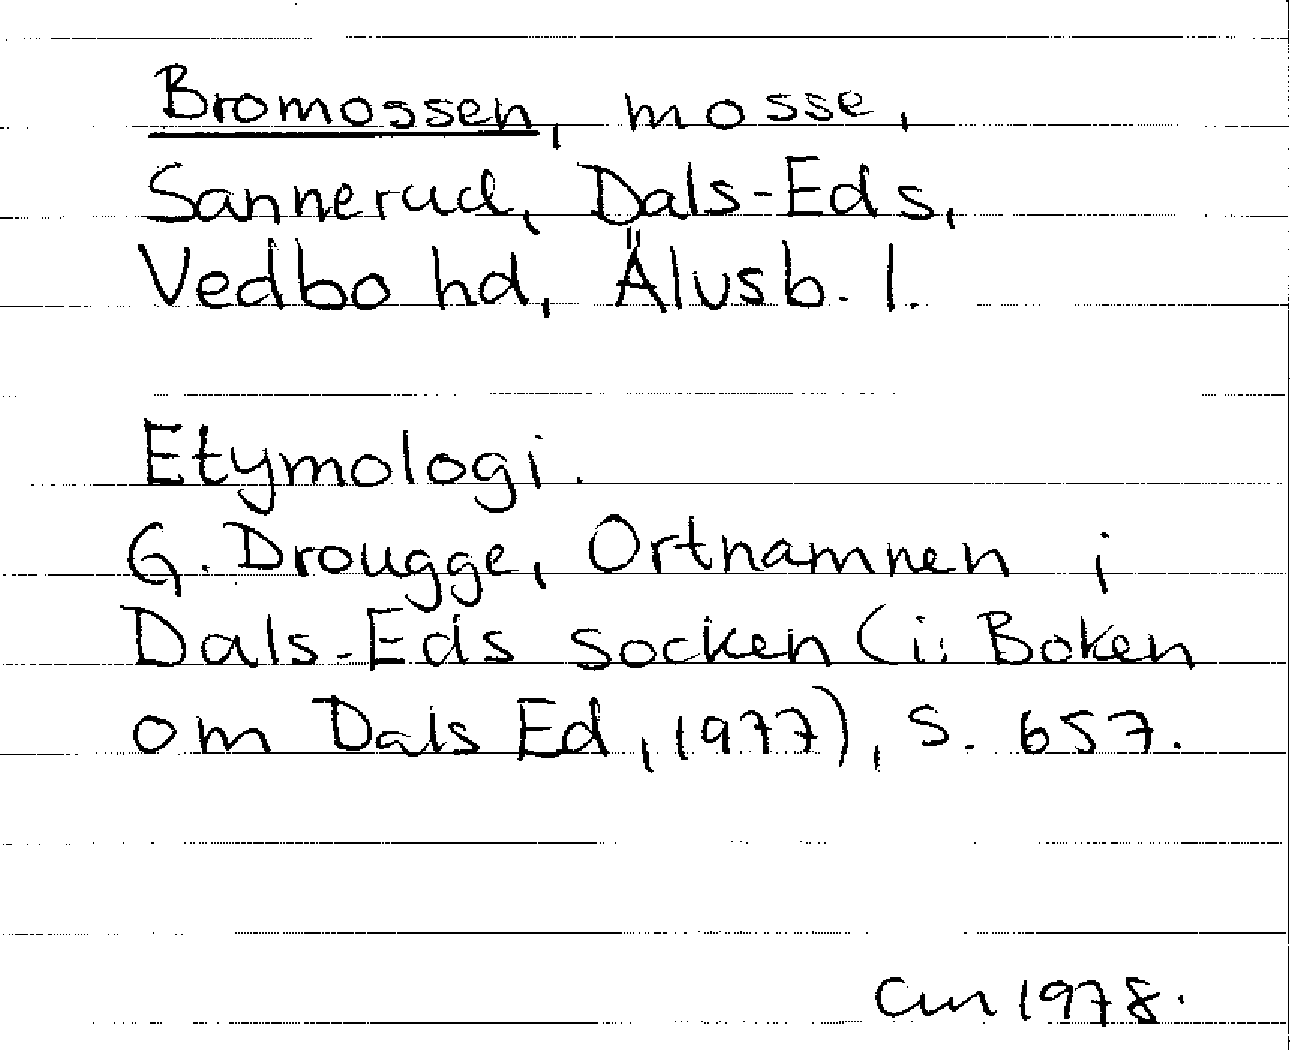 Bromossen, mosse,
Sannerud, Dals-Eds,
Vedbo hd, Älvsb. l.
Etymologi.
G. Drougge, Ortnamnen i
Dals-Eds socken (i: Boken
om Dals Ed, 1977), s. 657.
1978.